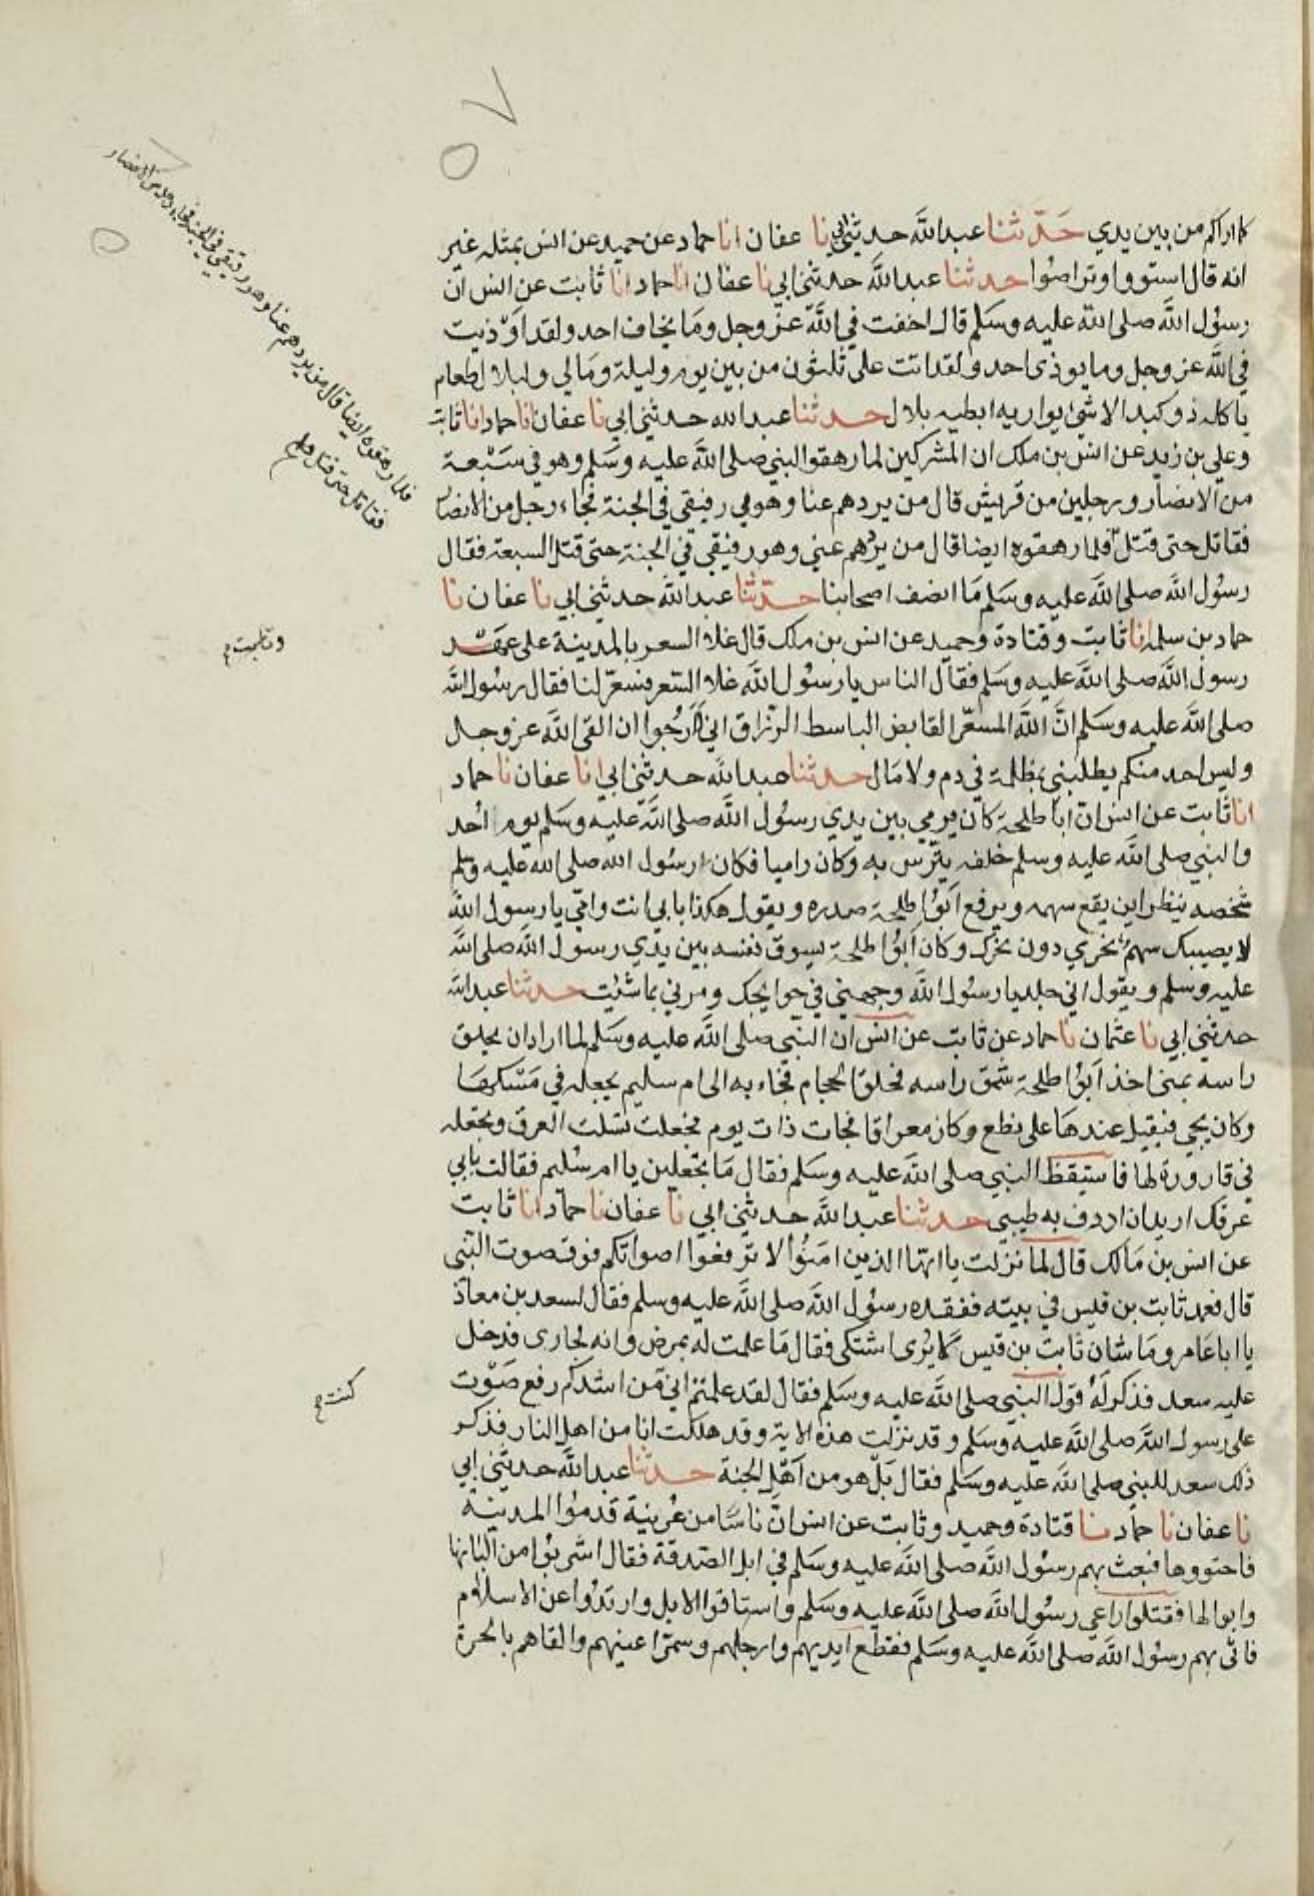 كما اراكم من بين يدي حدثنا عبدالله حدثني ابي نا عفان انا حماد عن حميد عن انس بمثله غير
انه قال استووا وتراصوا حدثنا عبدالله حدثني ابي نا عفان انا حماد انا ثابت عن انس ان
رسول الله صلى الله عليه وسلم قال اخفت في الله عز وجل وما يخاف احد ولقد اوذيت
في الله عز وجل وما يوذى احد ولقد اتت على ثلثون من بين يوم وليلة ومالي ولبلال طعام
ياكله ذو كبد الا شي يواريه ابط بلال حدثنا عبد الله حدثني ابي نا عفان انا حماد انا ثابت
وعلي بن زيد عن انس بن ملك ان المشركين لما رهقوا النبي صلى الله عليه وسلم وهو في سبعة
من الانصار ورجلين من قريش قال من يردهم عنا وهو رفيقي في الجنة فجاء رجل من الانصار
فقاتل حتى قتل فلما رهقوه ايضا قال من يردهم عني وهو رفيقي في الجنة حتى قتل السبعة فقال
رسول الله صلى الله عليه وسلم ما انصف اصحابنا حدثنا عبدالله حدثني ابي نا عفان نا
حماد بن سلمة انا ثابت وقتادة وحميد عن انس بن ملك قال غلا السعر بالمدينة على عهد
رسول الله صلى الله عليه وسلم فقال الناس يا رسول الله غلا السعر فسعر لنا فقال رسول الله
صلى الله عليه وسلم ان الله المسعر القابض الباسط الرزاق اني لارجوا ان القى الله عز وجل
وليس احد منكم يطلبني بمظلمة في دم ولا مال حدثنا عبدالله حدثني ابي انا عفان نا حماد
انا ثابت عن انس ان ابا طلحة كان يرمي بين يدي رسول الله صلى الله عليه وسلم يوم احد
والنبي صلى الله عليه وسلم خلفه يترس به وكان راميا فكان رسول الله صلى الله عليه وسلم
شخصه ينظر اين يقع سهمه ويرفع ابوا طلحة صدره ويقول هكذا بابي انت وامي يا رسول الله
لا يصيبك سهم نحري دون نحرك وكان ابوا طلحة يسوق نفسه بين يدي رسول الله صلى الله
عليه وسلم ويقول اني جلد يا رسول الله وجهني في حوايجك ومرني بما شئت حدثنا عبدالله
حدثني ابي نا عثمان نا حماد عن ثابت عن انس ان النبي صلى الله عليه وسلم لما اراد ان يحلق
راسه بمنى اخذ ابوا طلحة شق راسه فحلق الحجام فجاء به الى ام سليم يجعله في مسكها
وكان يجي فيقيل عندها على نطع وكان معراقا فجات ذات يوم فجعلت تسلت العرق وتجعله
في قارورة لها فاستيقظ النبي صلى الله عليه وسلم فقال ما تجعلين يا ام سليم فقالت بابي
عرقك اريد ان ادوف به طيبي حدثنا عبدالله حدثني ابي نا عفان نا حماد انا ثابت
عن انس بن مالك قال لما نزلت يا ايها الذين امنوا لا ترفعوا اصواتكم فوق صوت النبي
قال قعد ثابت بن قيس في بيته ففقده رسول الله صلى الله عليه وسلم فقال لسعد بن معاذ
يا ابا عامر وما شان ثابت بن قيس لا يرى اشتكى فقال ما علمت له بمرض وانه لجارى فدخل
عليه سعد فذكر له قول النبي صلى الله عليه وسلم فقال لقد علمتم اني من اشدكم رفع صوت
على رسول الله صلى الله عليه وسلم وقد نزلت هذه الاية وقد هلكت انا من اهل النار فذكر
ذلك سعد للنبي صلى الله عليه وسلم فقال بل هو من اهل الجنة حدثنا عبدالله حدثني ابي
نا عفان نا حماد نا قتادة وحميد وثابت عن انس ان ناسا من عرينة قدموا المدينة
فاجتووها فبعث بهم رسول الله صلى الله عليه وسلم في ابل الصدقة فقال اشربوا من البانها
وابوالها فقتلوا راعي رسول الله صلى الله عليه وسلم واستاقوا الابل وارتدوا عن الاسلام
فاتى بهم رسول الله صلى الله عليه وسلم فقطع ايديهم وارجلهم وسمر اعينهم والقاهم بالحرة
فلما رهقوه ايضا قال من يردهم عنا وهو رفيقي في الجنة فجاء رجل من الانصار
فقاتل حتى قتل
وثابت
كنت